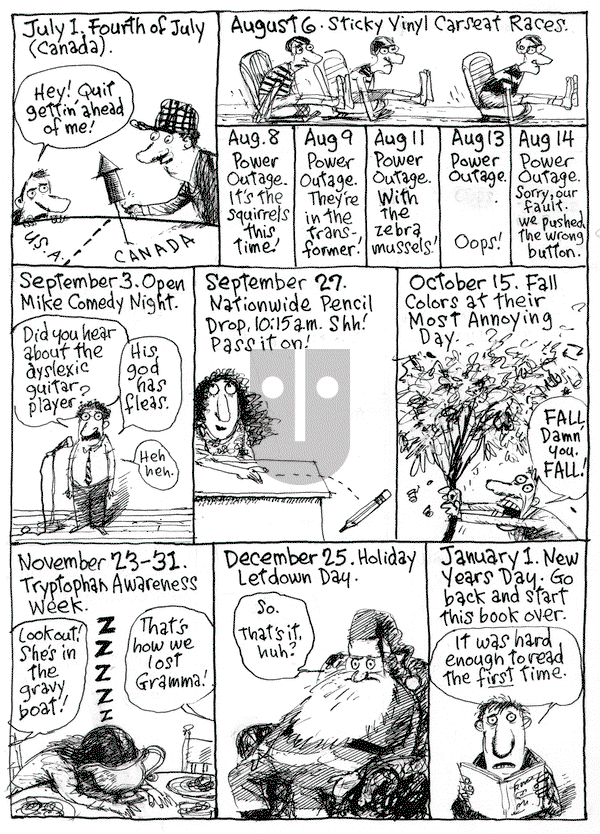 July 1. Fourth of July
(Canada).
Hey! Quit
gettin' ahead
of me!
U.S.A.
CANADA
August 6. Sticky Vinyl Carseat Races.
Aug. 8
Power
Outage.
It's the
squirrels
this
time!
Aug 9
Power
Outage.
They're
in the
trans-
former!
Aug 11
Power
Outage.
With
the
zebra
mussels!
Aug 13
Power
Outage.
Oops!
Aug 14
Power
Outage.
Sorry, our
fault.
We pushed
the wrong
button.
September 3. Open
Mike Comedy Night.
Did you hear
about the
dyslexic
guitar
player?
His
god
has
fleas.
Heh
heh.
September 27.
Nationwide Pencil
Drop, 10:15 a.m. Shh!
Pass it on!
October 15. Fall
Colors at their
Most Annoying
Day.
FALL,
Damn
you,
FALL!
November 23-31.
Tryptophan Awareness
Week.
Look out!
She's in
the
gravy
boat!!
Z
Z
Z
Z
Z
Z
That's
how we
lost
Gramma!
December 25. Holiday
Letdown Day.
So.
That's it,
huh?
January 1. New
Years Day. Go
back and start
this book over.
It was hard
enough to read
the first time.